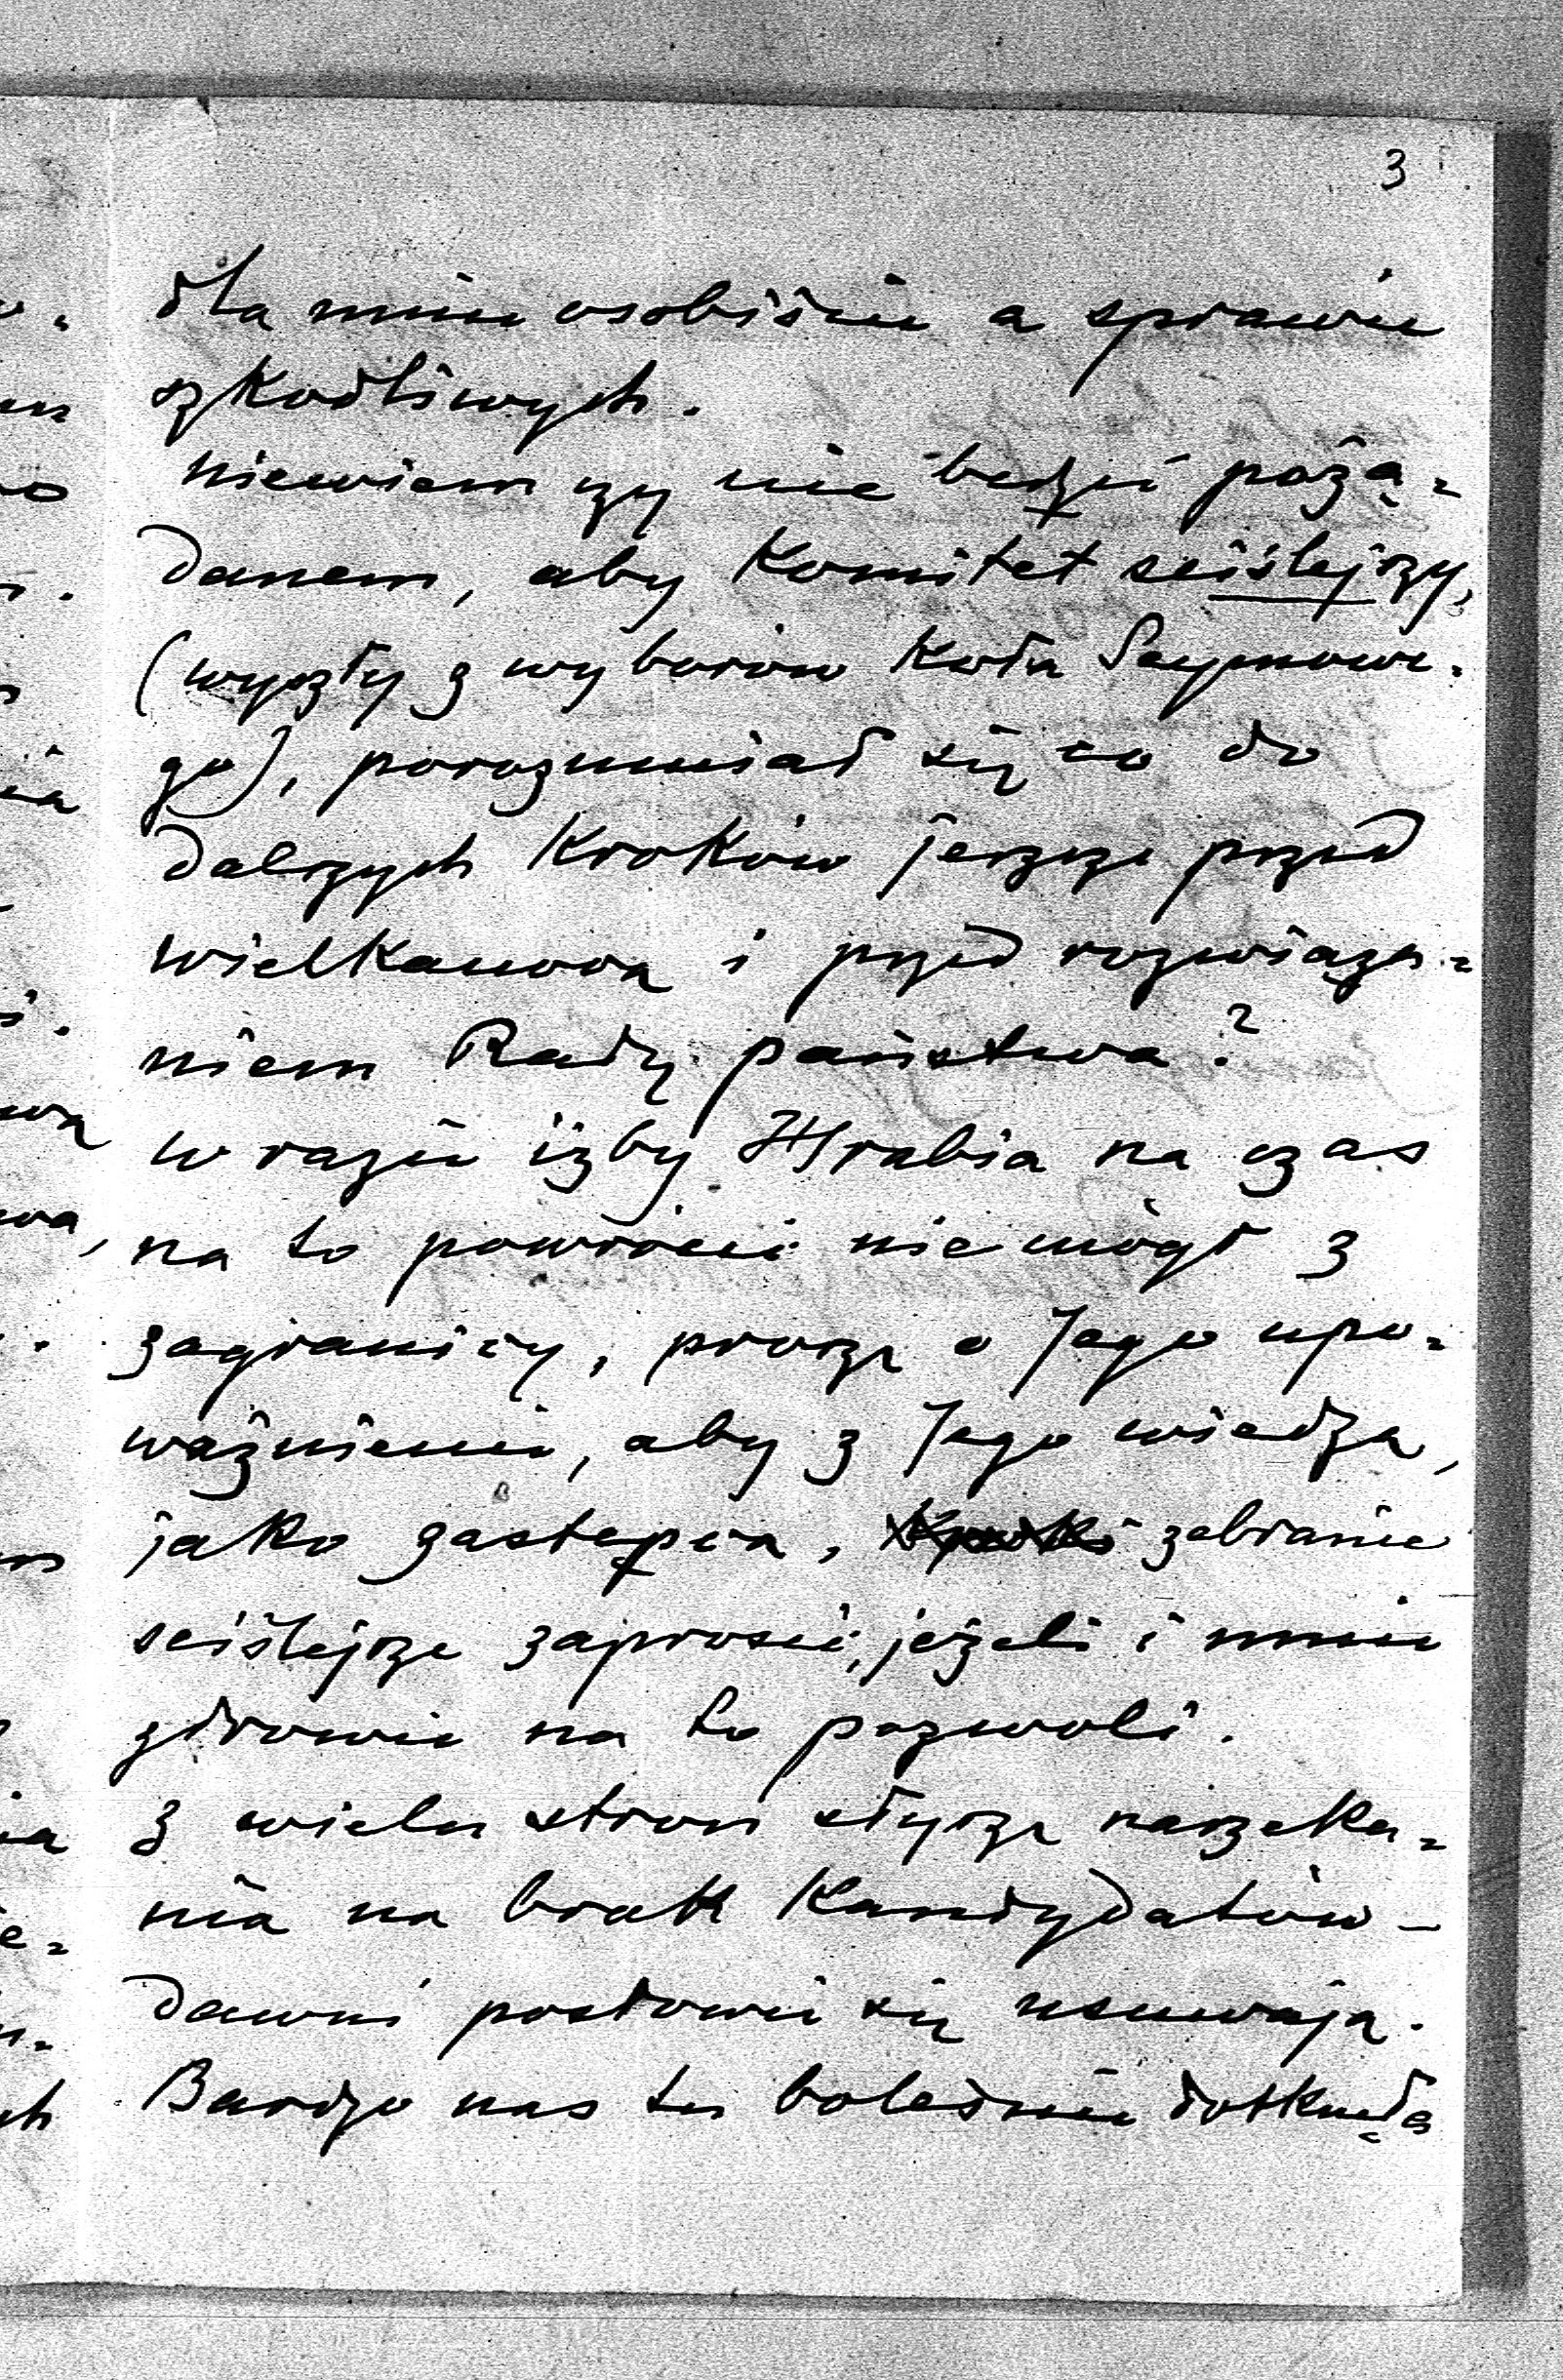 3
dla mnie osobiście a sprawie
szkodliwych.
niewiem czy nie będzie pożą-
danem, aby Komitet ściślejszy,
(wyszły z wyborów Koła Seymowe-
go), porozumiał się co do
dalszych Kroków jeszcze przed
wielkanocą i przed rozwiąza-
niem Rady państwa?
w razie iżby Hrabia na czas
na to powrócić nie mógł z
zagranicy, proszę o Jego upo-
ważnienie, aby z Jego wiedzą,
jako zastępca, zebranie
ściślejsze zaprosić, jeżeli i mnie
zdrowie na to pozwoli.
Z wielu stron słyszę narzeka-
nia na brak Kandydatów –
dawni posłowie się usuwają.
Bardzo nas tu boleśnie dotknęła